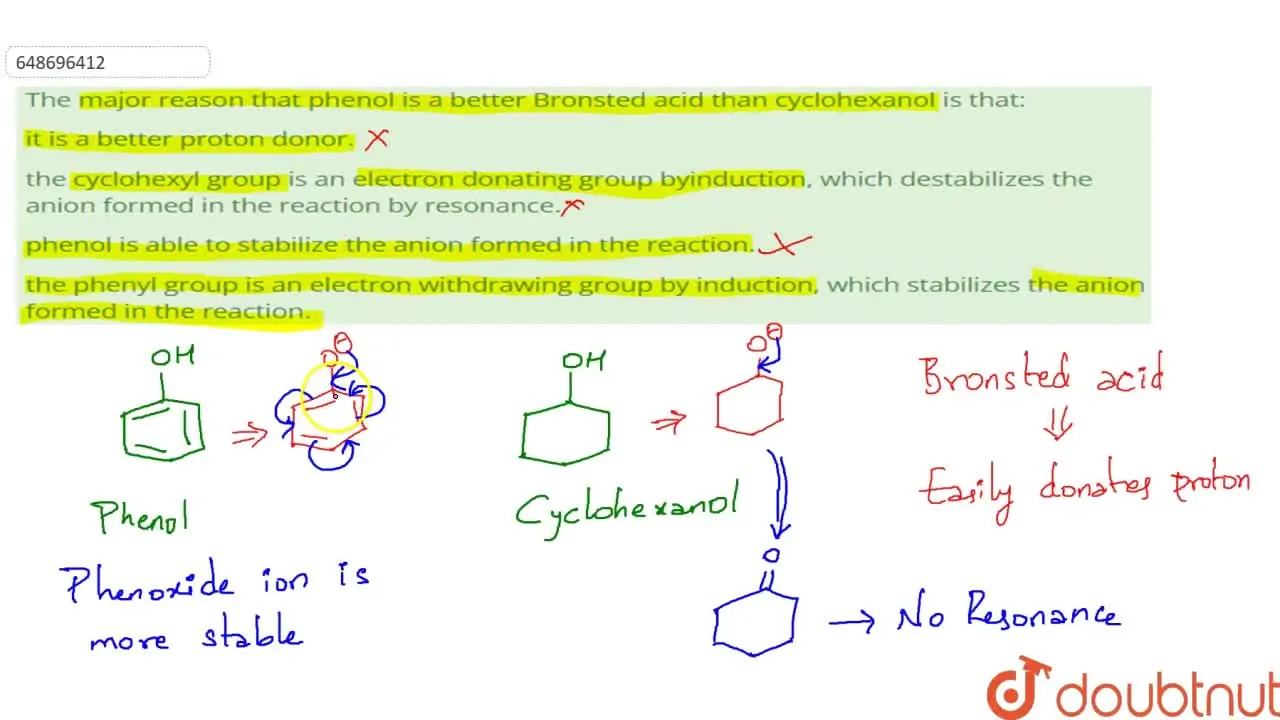 648696412
The major reason that phenol is a better Bronsted acid than cyclohexanol is that:
it is a better proton donor.
the cyclohexyl group is an electron donating group byinduction, which destabilizes the
anion formed in the reaction by resonance.
phenol is able to stabilize the anion formed in the reaction.
the phenyl group is an electron withdrawing group by induction, which stabilizes the anion
formed in the reaction.
OH
O
OH
O
Bronsted acid
Easily donates proton
Phenol
Cyclohexanol
Phenoxide ion is
more stable
O
No Resonance
doubtnut